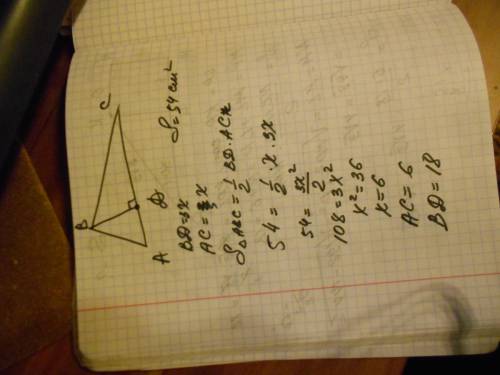 B
C
A
D
S=54 cm²
BD=3x
AC=x
S△ABC=1/2 BD·AC
54=1/2·x·3x
54=3x²/2
108=3x²
x²=36
x=6
AC=6
BD=18